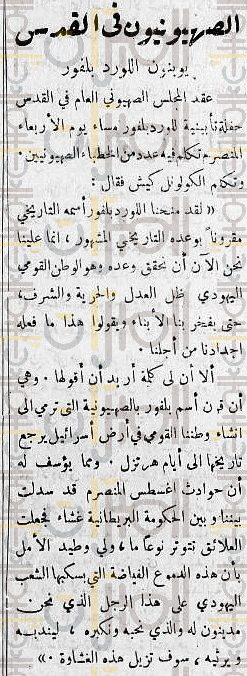 الصهيونيون فى القدس
يوبنون اللورد بلفور
عقد المجلس الصهيوني العام في القدس
حفلة تأبينية للورد بلفور مساء يوم الأربعاء
المنصرم تكلم فيه عدد من الخطباء الصهيونيين.
وتكلم الكولونل كيش فقال :
« لقد منحنا اللورد بلفور أسمه التاريخي
مقروناً بوعده التاريخي المشهور ، انما علينا
نحن الآن أن نحقق وعده وهو الوطن القومي
اليهودي ظل العدل والحرية والشرف،
حتى يفخر بنا الأبناء ويقولوا هذا ما فعله
اجدادنا من أجلنا .
ألا أن لى كلمة أريد أن أقولها . وهي
أن قرن أسم بلفور بالصهيونية التى ترمي الى
انشاء وطننا القومي في أرض أسرائيل يرجع
تاريخها الى أيام هرتزل . ومما يؤسف له
أن حوادث اغسطس المنصرم قد سدلت
بيننا وبين الحكومة البريطانية غشاء فجعلت
العلائق تتوتر نوعاً ما ، ولي وطيد الأمل
بأن هذه الدموع الفياضة التي يسكبها الشعب
اليهودي على هذا الرجل الذي نحن
مدينون له والذي نحبه ونكبره ، ليندبه
و يرثيه ، سوف تزيل هذه الغشاوة . »